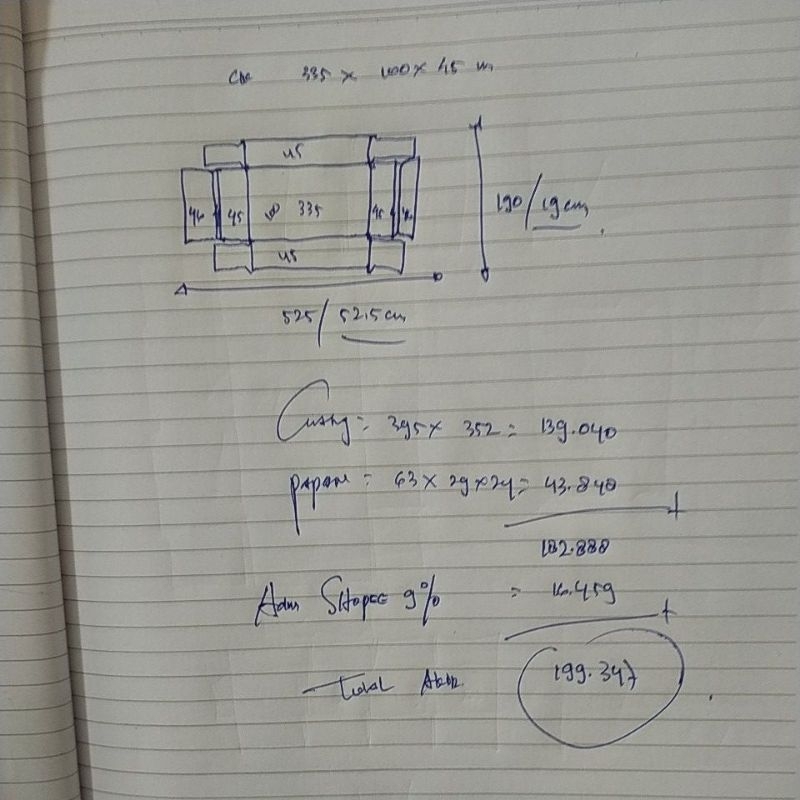 335 x 100 x 45 m
45
44 45 335 45
45
190/19cm
525/52.5cm
= 395 x 352 = 139.040
papan = 63 x 29 x 24 = 43.848
182.888
Adm Shopee 9% = 16.459
Total 199.347